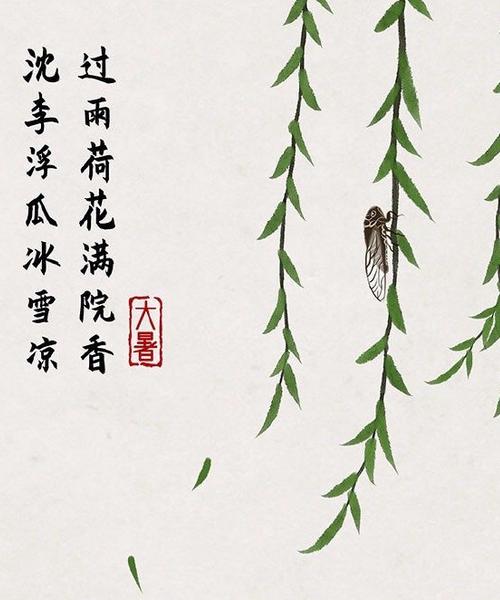 过雨荷花满院香
沈李浮瓜冰雪凉
大暑